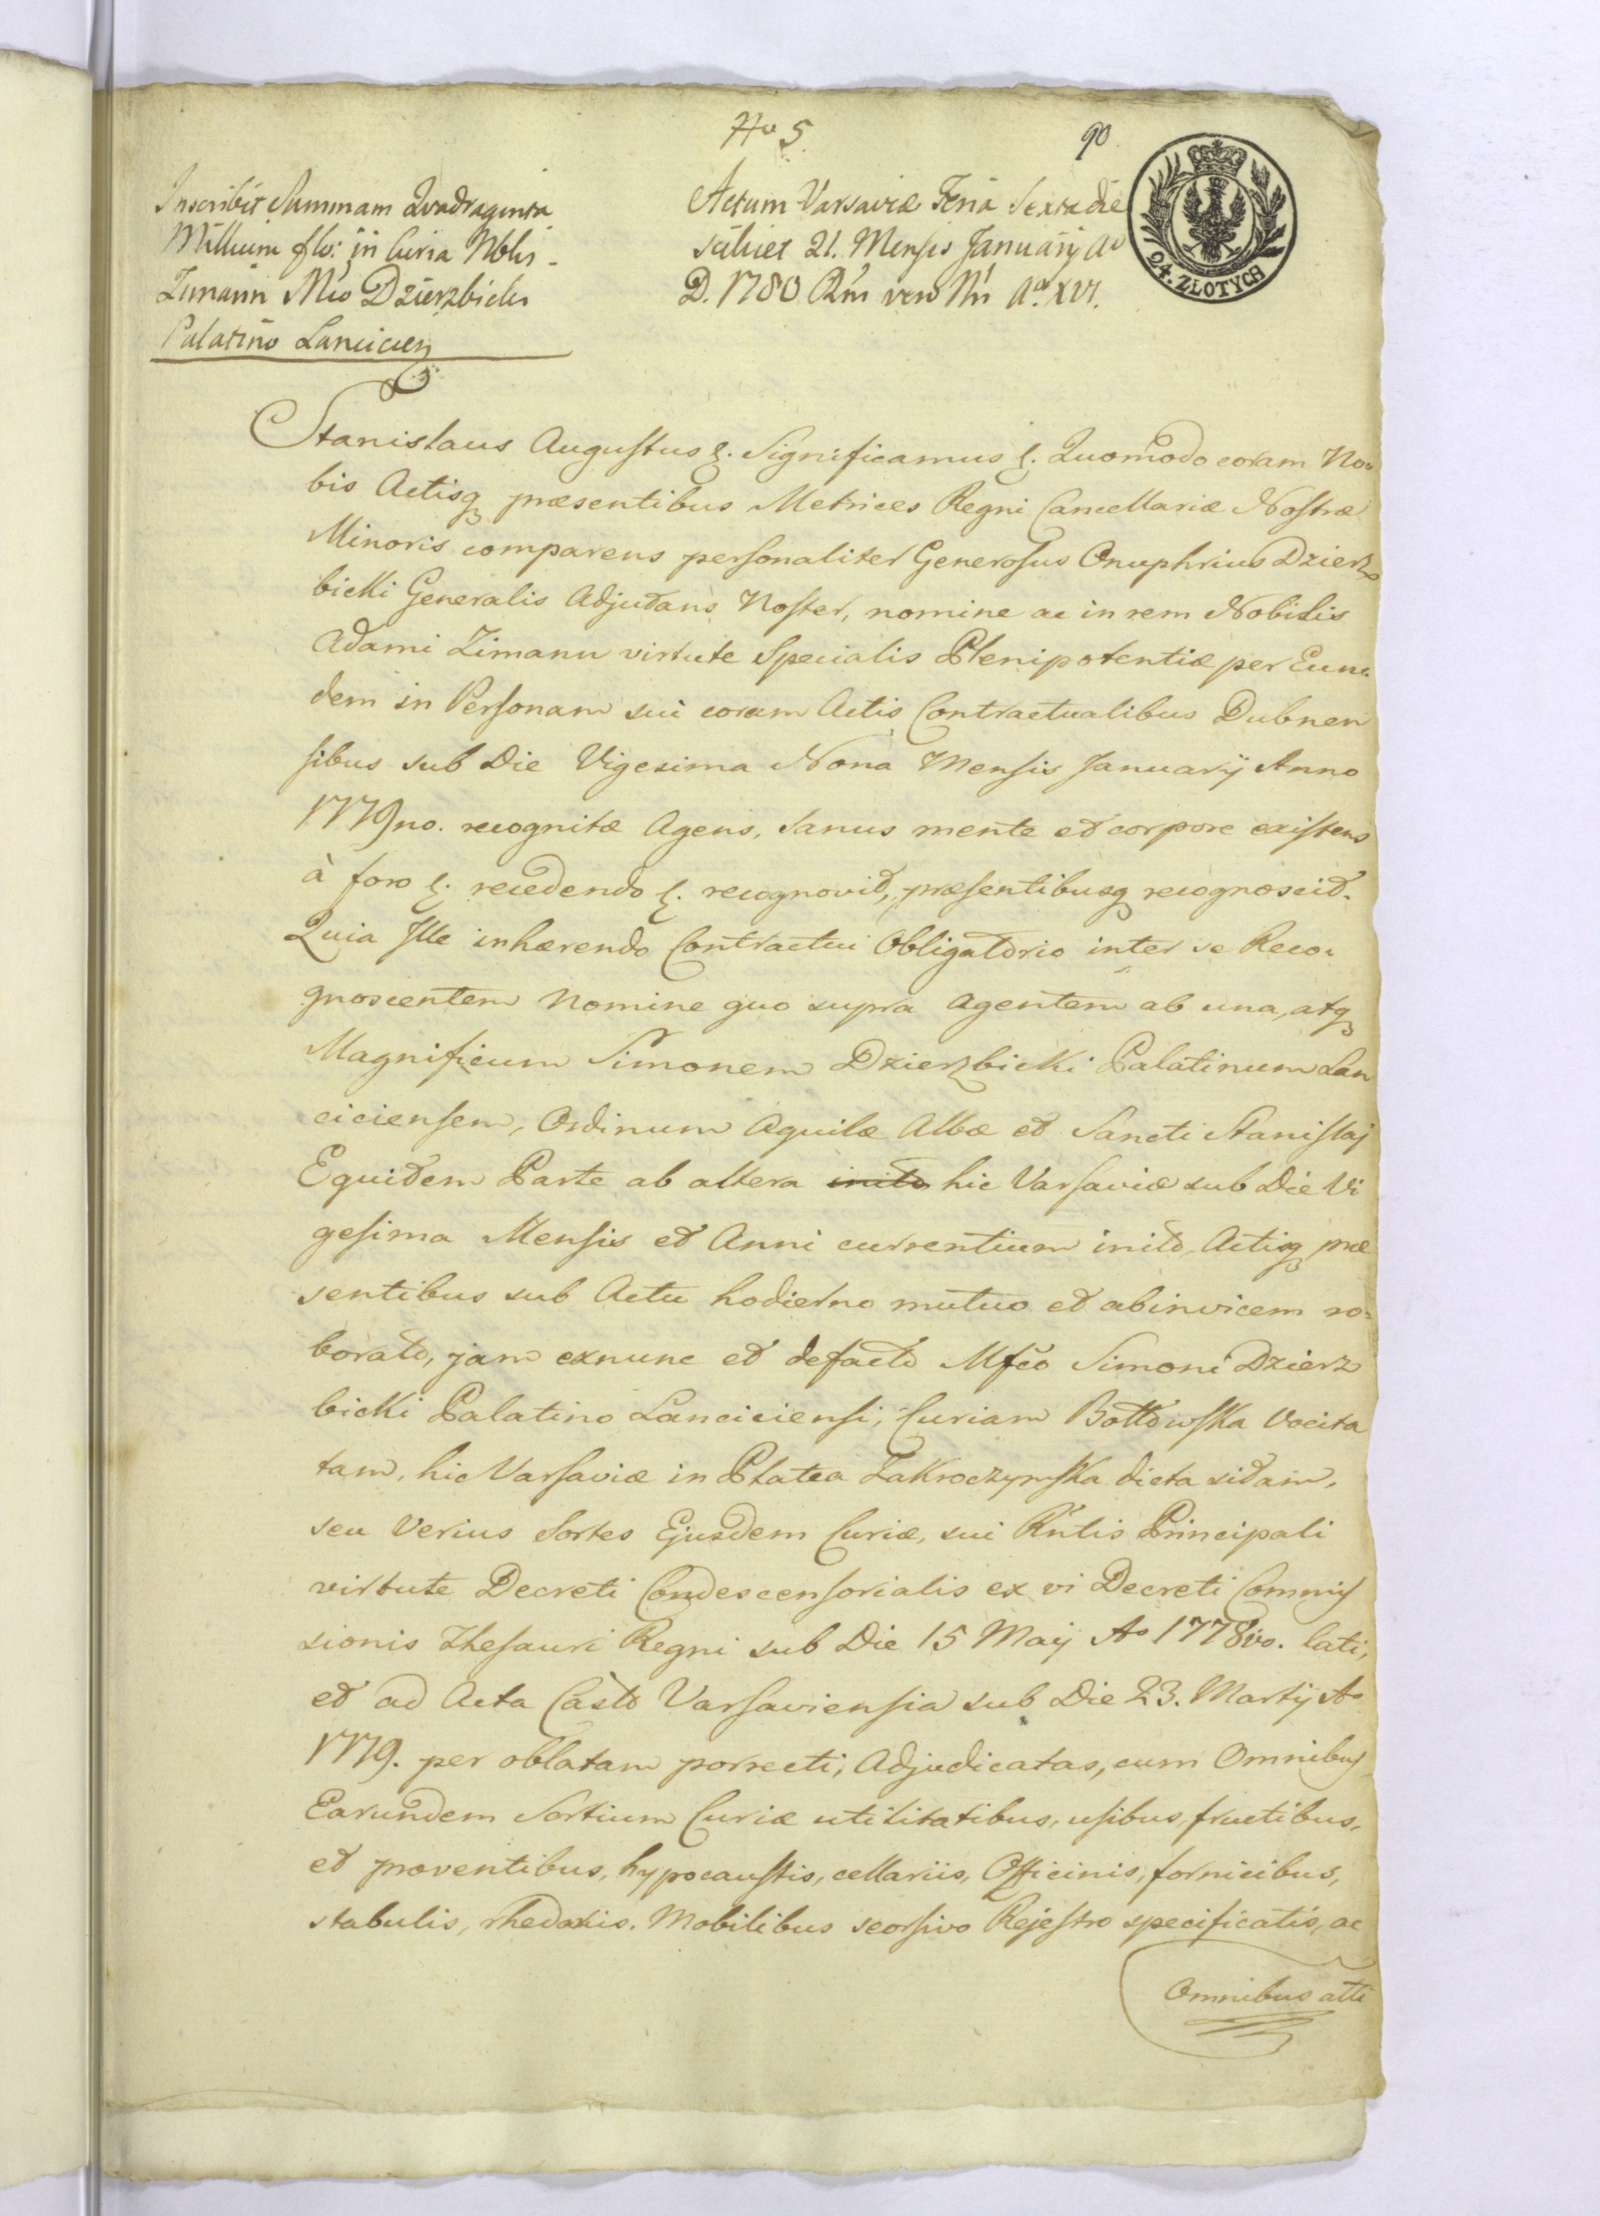 No 5
90
24. ZŁOTYCH
Inscribit Summam Quadraginta
Millium flo: in Curia Nblis
Zimann Mco Dzierzbicki
Palatino Lancicien
Actum Varsaviæ Feria Sexta die
scilicet 21. Mensis Januarij Ao
D. 1780 Rni vero Nri Ao XVI.
Stanislaus Augustus &. Significamus &. Quomodo coram No-
bis Actisq præsentibus Metrices Regni Cancellariæ Nostræ
Minoris comparens personaliter Generosus Onuphrius Dzierz-
bicki Generalis Adjutans Noster, nomine ac in rem Nobilis
Adami Zimann virtute Specialis Plenipotentiæ per Eun-
dem in Personam sui coram Actis Contractualibus Dubnen
sibus sub Die Vigesima Nona Mensis Januarij Anno
1779no. recognitæ Agens, Sanus mente et corpore existens
à foro &. recedendo &. recognovit, præsentibusq recognoscit.
Quia Ille inhærendo Contractui Obligatorio inter se Reco-
gnoscentem Nomine quo supra Agentem ab una, atq
Magnificum Simonem Dzierzbicki Palatinum Lan
ciciensem, Ordinum Aquilæ Albæ et Sancti Stanislaj
Equidem Parte ab altera inito hic Varsaviæ sub Die Vi
gesima Mensis et Anni currentium inito, Actisq præ
sentibus sub Actu hodierno mutuo et abinvicem ro-
borato, jam exnunc et defacto Mfco Simoni Dzierz
bicki Palatino Lanciciensi, Curiam Bottowska Vocita
tam, hic Varsaviæ in Platea Zakroczymska dicta sitam,
seu Verius Sortes Ejusdem Curiæ, sui Rntis Principali
virtute Decreti Condescensorialis ex vi Decreti Commis
sionis Thesauri Regni sub Die 15 Maij Ao 1778vo. lati,
et ad Acta Casto Varsaviensia sub Die 23. Martij Ao
1779. per oblatam porrecti, Adjudicatas, cum Omnibus
Earundem Sortium Curiæ utilitatibus, usibus, fructibus,
et proventibus, hypocaustis, cellariis, Officinis, fornicibus,
stabulis, rhedariis. Mobilibus seorsivo Rejestro specificatis, ac
Omnibus atti